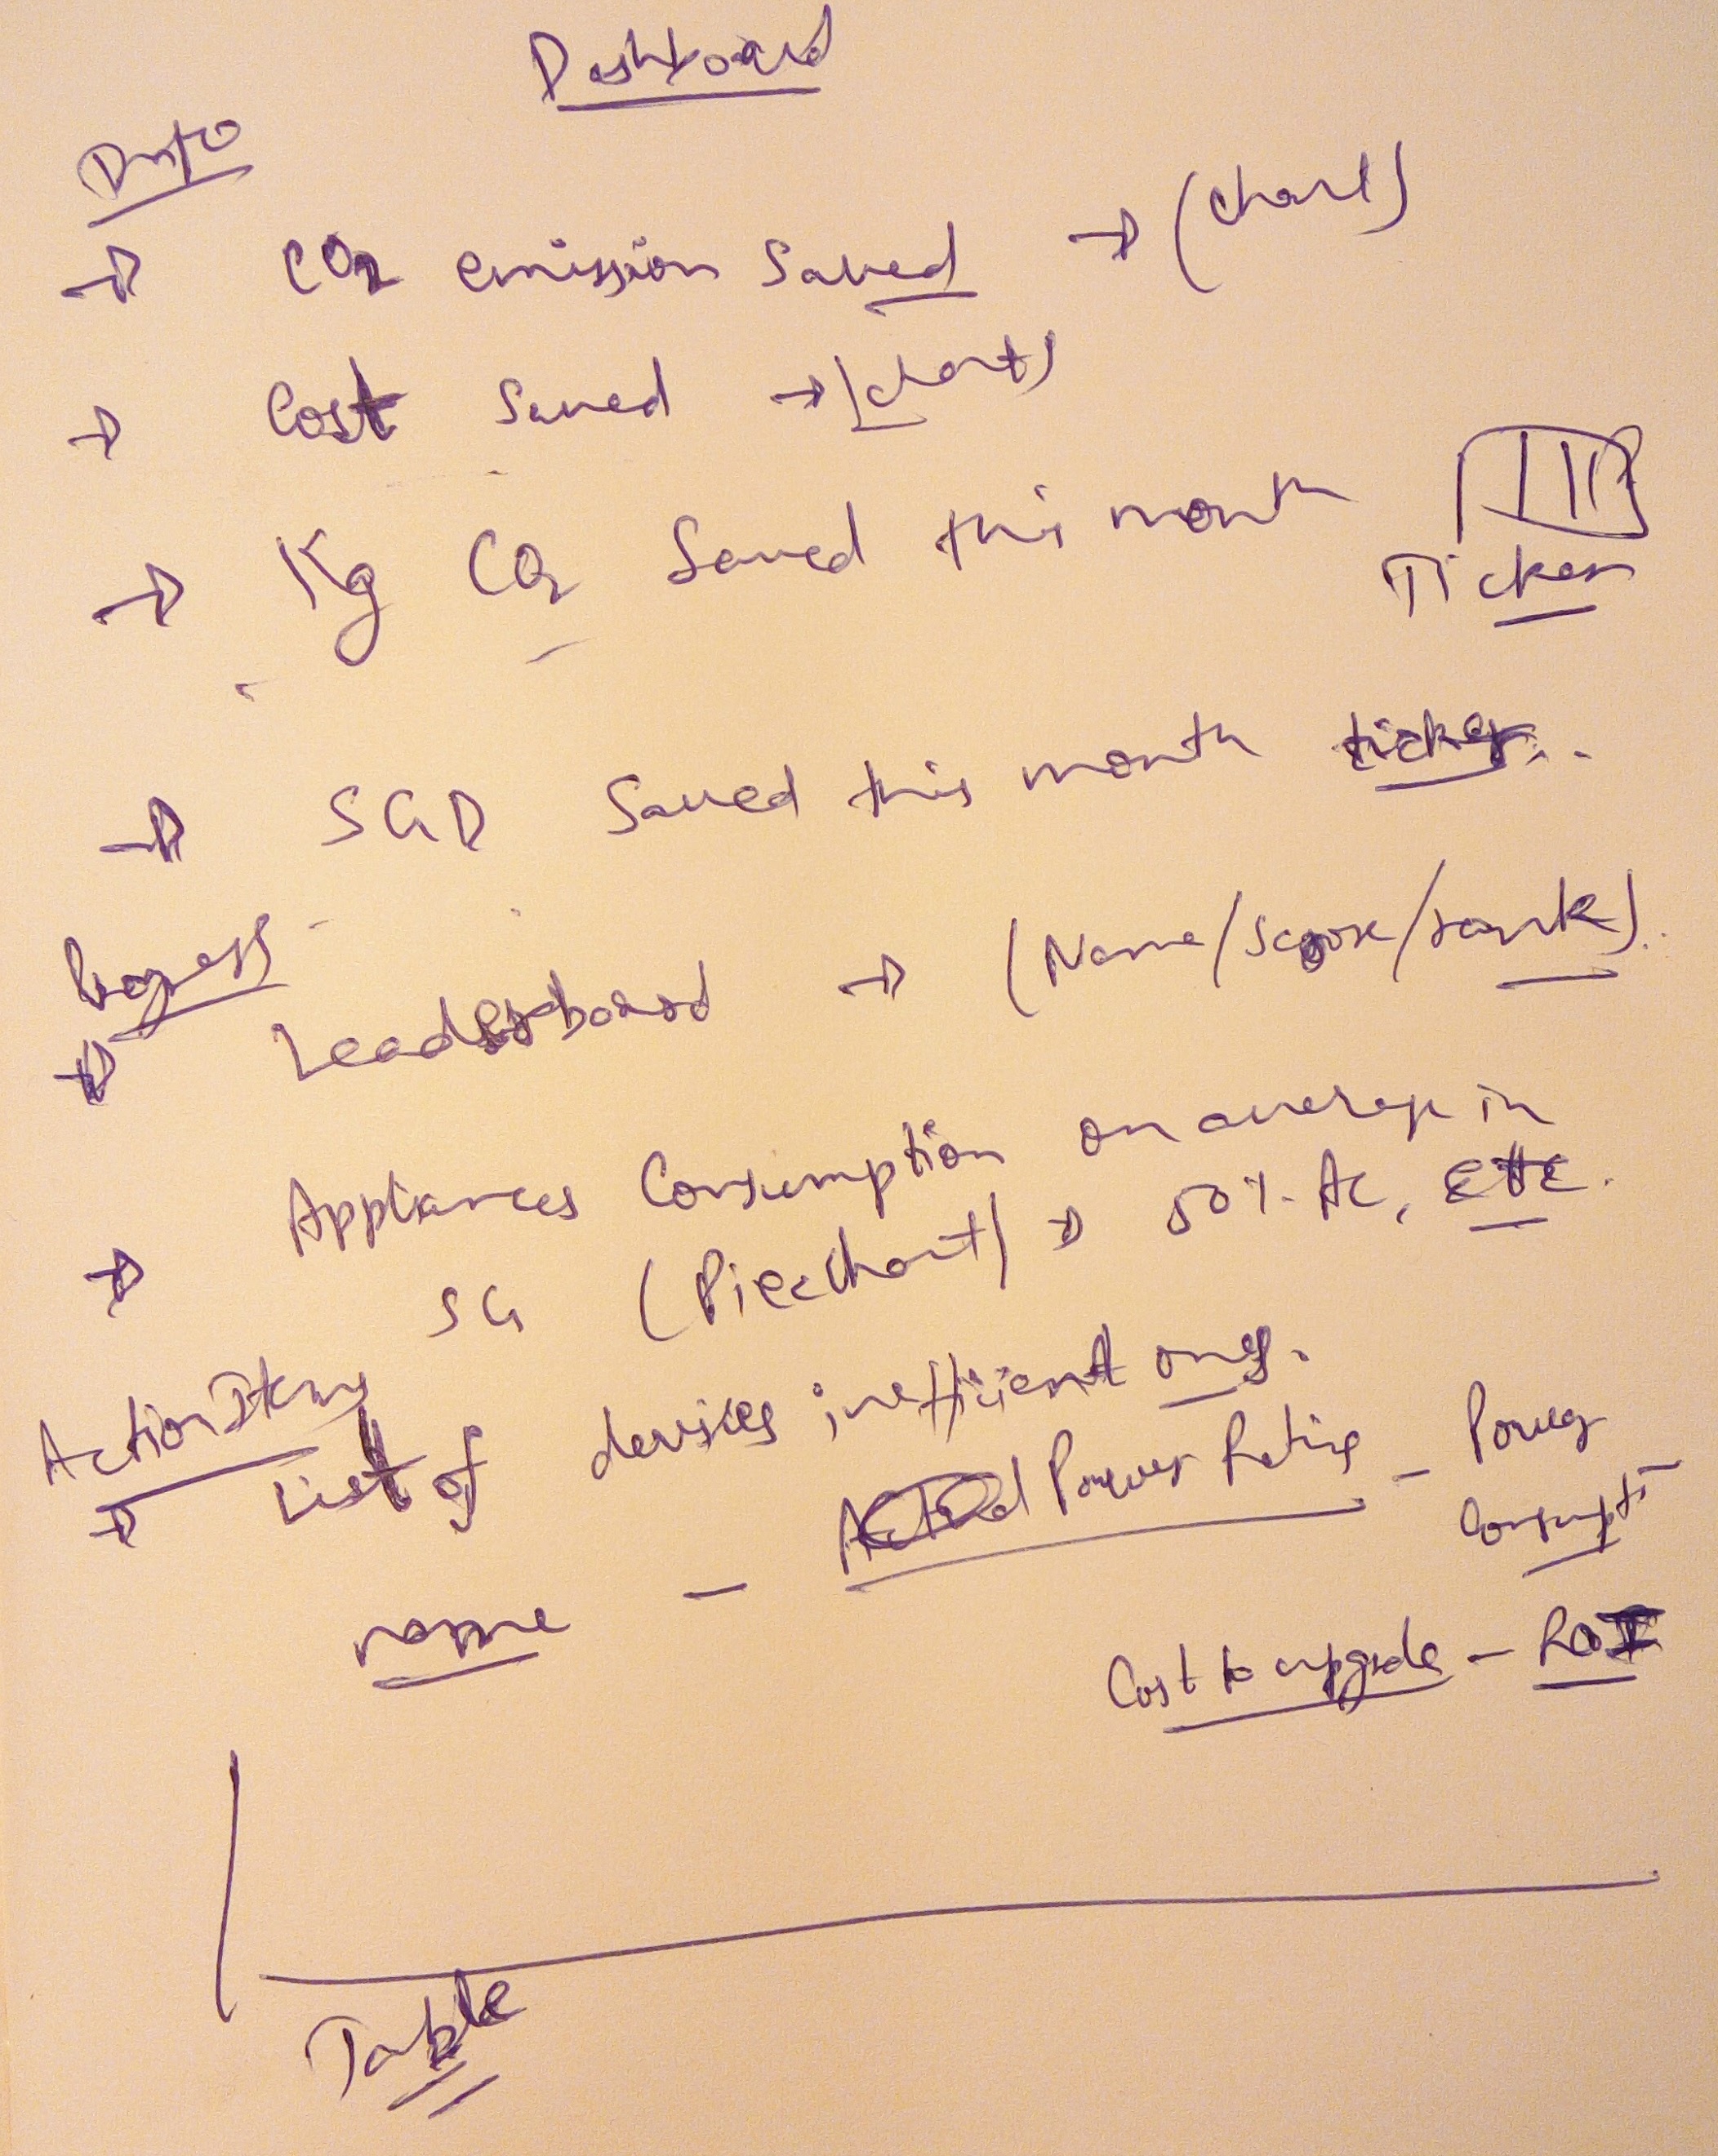 Dashboard
Info
→ CO2 emission saved → (chart)
→ Cost saved → (chart)
→ Kg CO2 saved this month
Ticker
→ SGD saved this month ticker..
Progress
→ Leaderboard → (Name/score/rank).
→ Appliances Consumption on average in
SG (Piechart) → 50% AC, ETC.
Action Items
→ List of devices inefficient ones.
name – Power Rating – Power
Consumpti
Cost to upgrade – ROI
Table